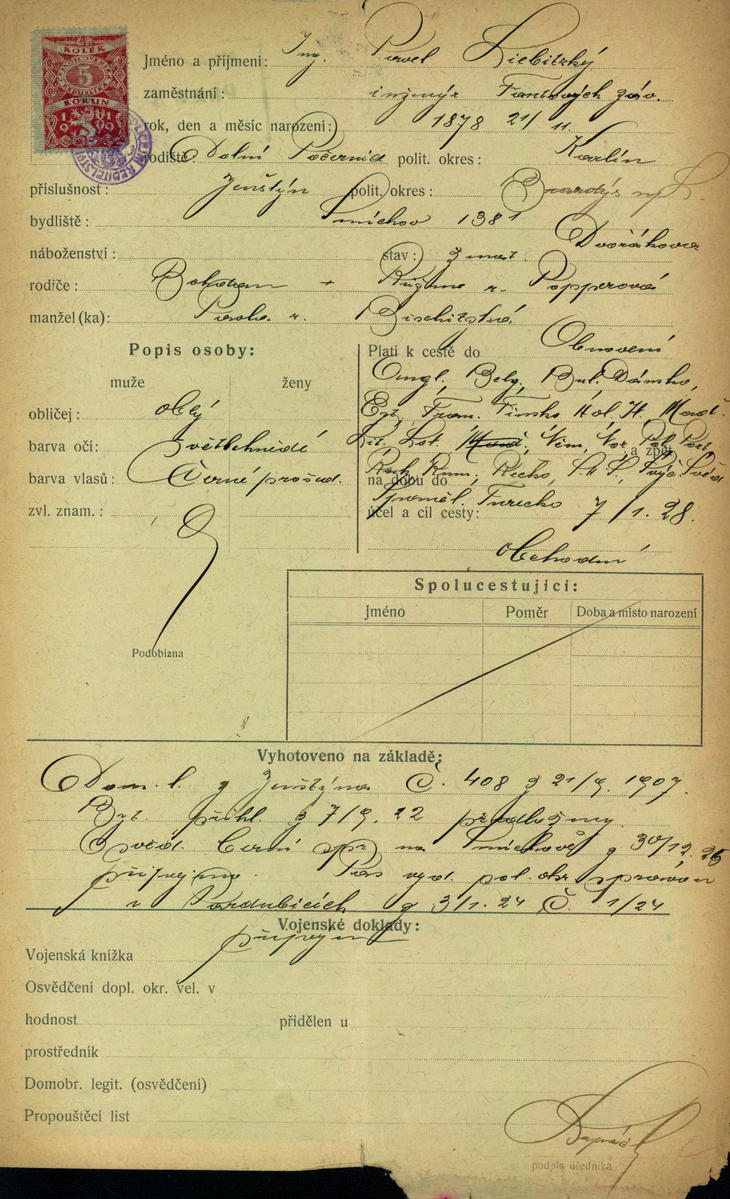 KOLEK
5
KORUN
1919
Jméno a příjmení: Ing. Pavel Liebitzký
zaměstnání: inženýr Fantových záv.
rok, den a měsíc narození: 1878 21/11.
rodiště: Dolní Počernice polit. okres: Karlín
příslušnost: Jenštýn polit. okres: Brandýs n/L
bydliště: Smíchov 1381 Dvořákova
náboženství: stav: ženat
rodiče: + Růžena r. Popperová
manžel (ka): r.
Popis osoby: Platí k cestě do Obnovení
muže ženy Angl. Belg. Bul. Dánsko,
obličej: oblý Egt. Fran. Finsko Hol. It. Maď.
barva očí: světlehnědé Lit. Lot. Něm. Nor. Pol. Port. a zpět
barva vlasů: černé prošed. na dobu do Rak. Rum. Řecko,
zvl. znam.: účel a cíl cesty: Turecko 7/1. 28.
obchodní
Podobizna
Spolucestující:
Jméno Poměr Doba a místo narození
Vyhotoveno na základě:
Dom. l. z Jenštýna Č. 408 z 21/9. 1907.
Byt. přihl. z 7/9. 22 předloženy.
Osvěd. Berní spr. na Smíchově z 30/12. 26
připojeno. Pas vyd. pol. okr. správou
v Pardubicích z 3/1. 24 Č. 1/24
připojen
Vojenské doklady:
Vojenská knížka
Osvědčení dopl. okr. vel. v
hodnost přidělen u
prostředník
Domobr. legit. (osvědčení)
Propouštěcí list
podpis úředníka